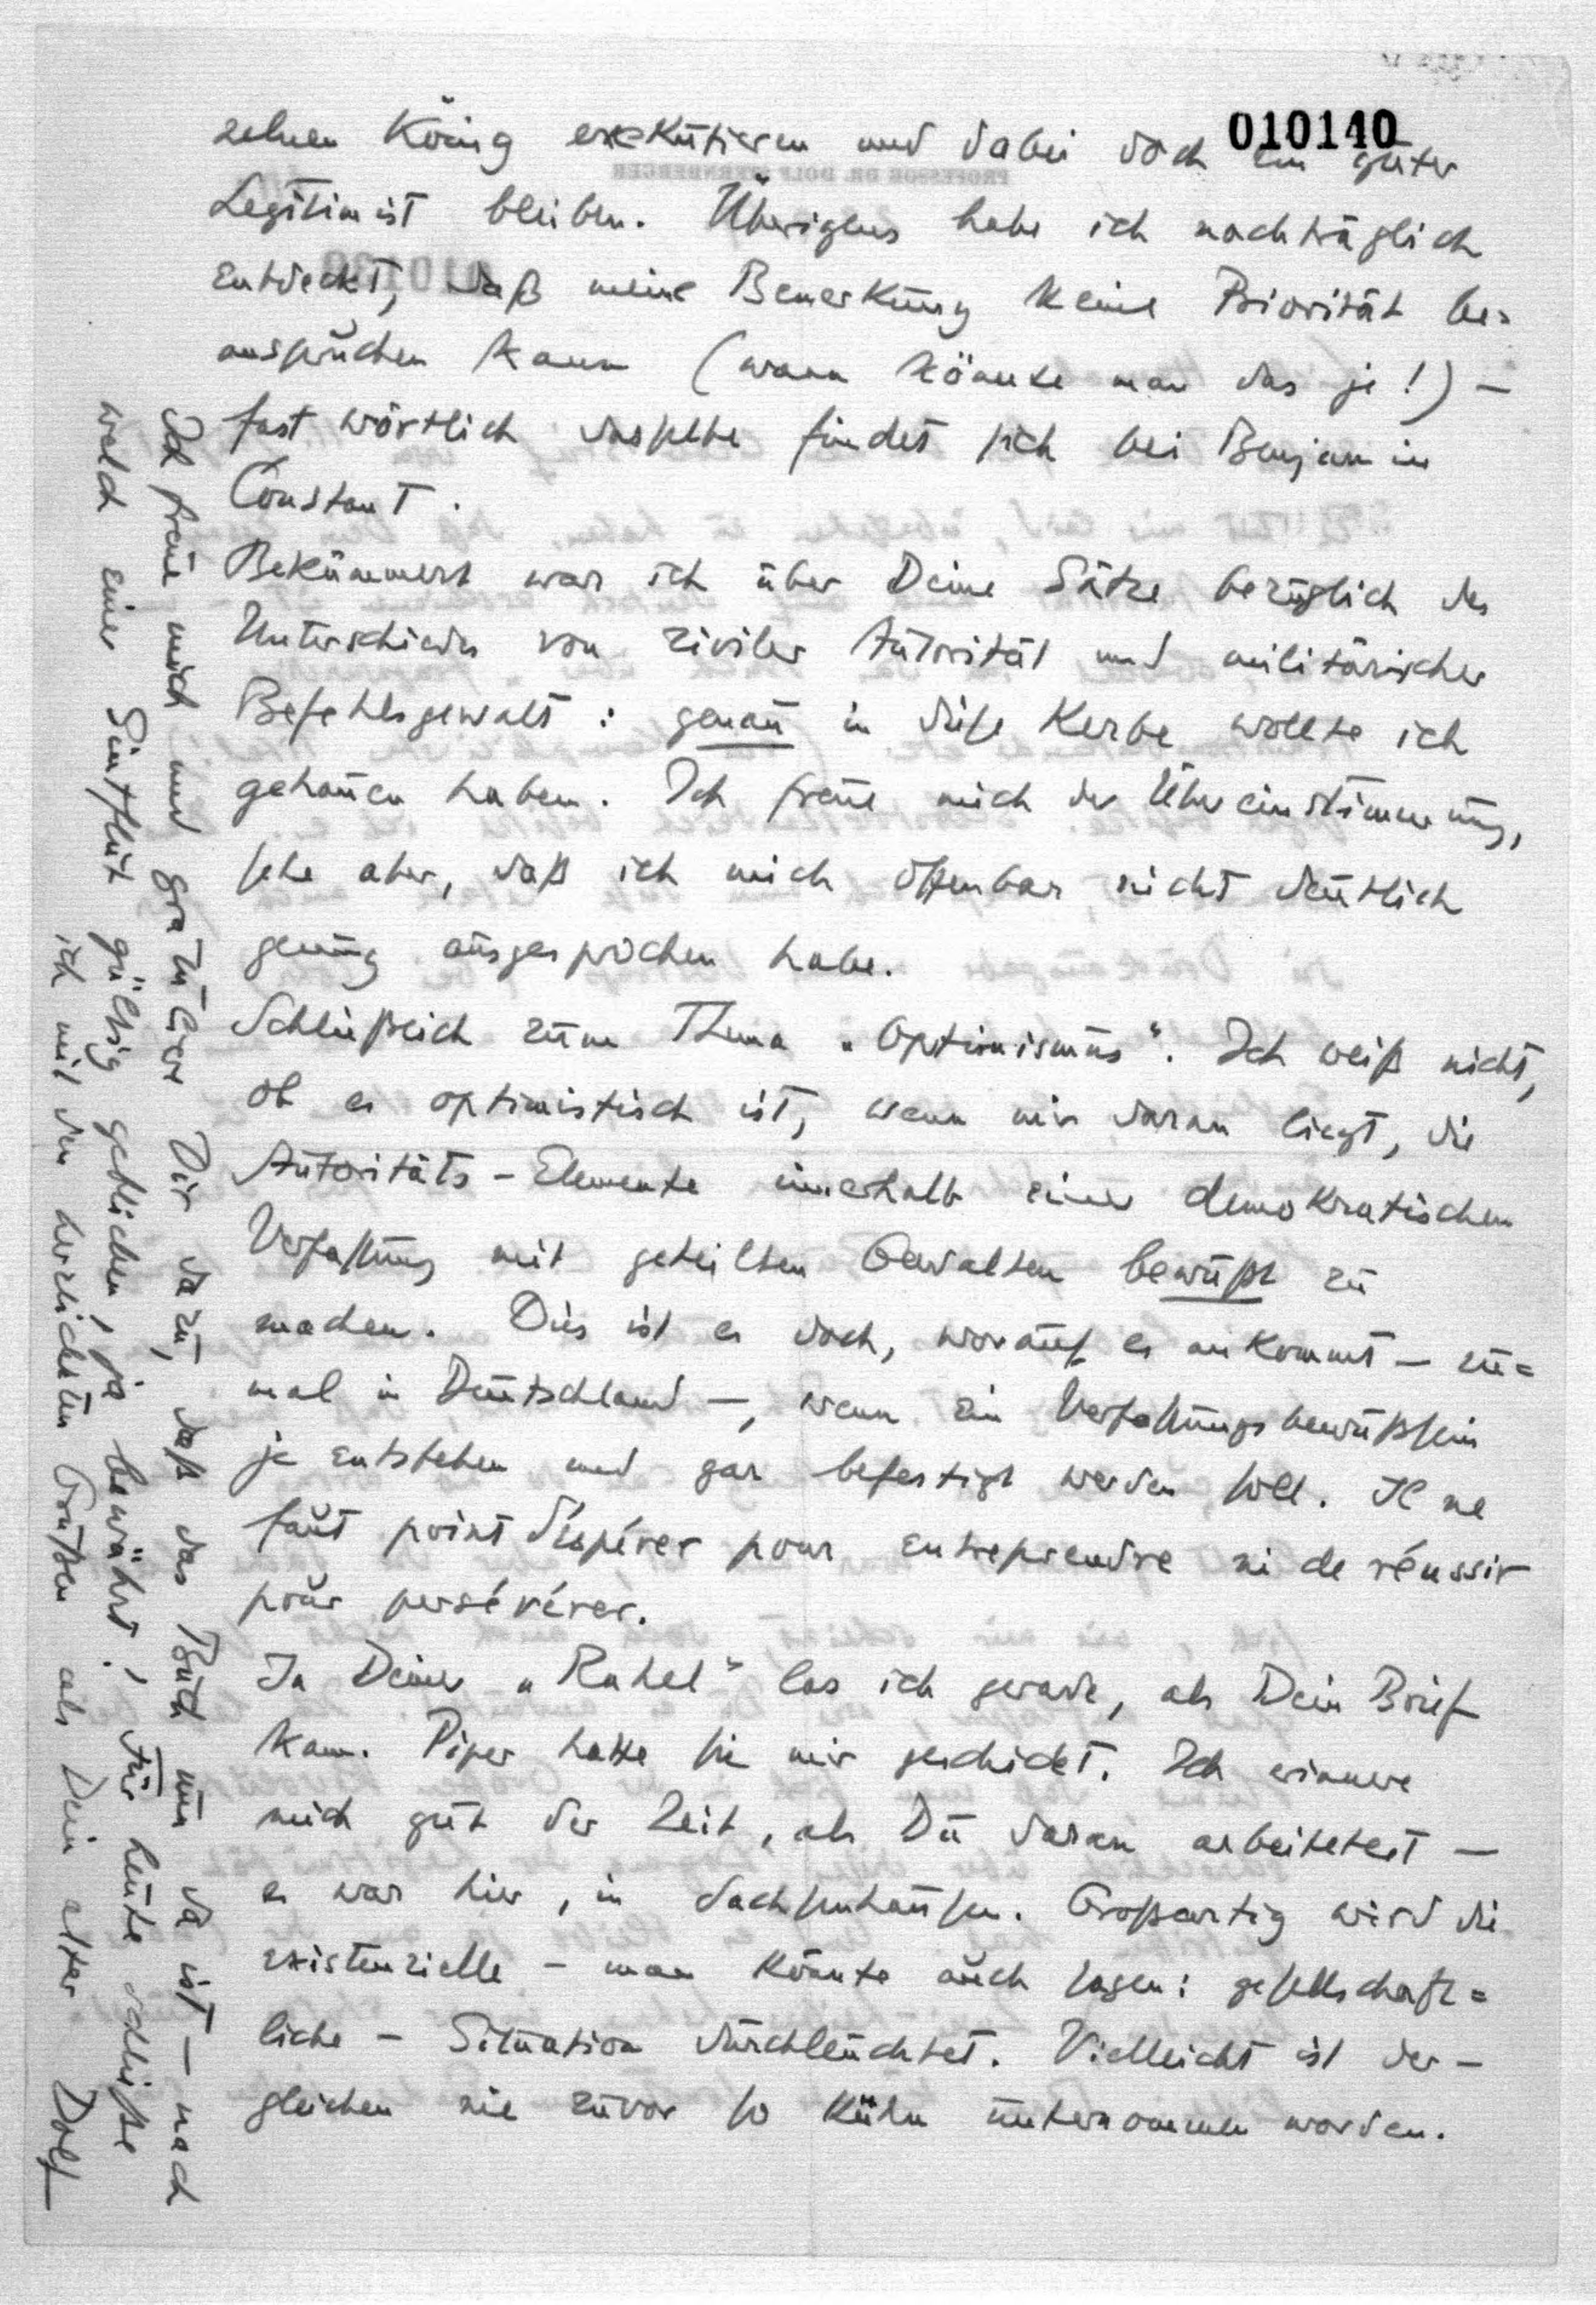 010140
zelnen König exekutieren und dabei doch ein guter
Legitimist bleiben. Übrigens habe ich nachträglich
entdeckt, daß meine Bemerkung keine Priorität be=
anspruchen kann (wann könnte man das je!) —
fast wörtlich dasselbe findet sich bei Benjamin
Constant.
Bekümmert war ich über Deine Sätze bezüglich des
Unterschiedes von ziviler Autorität und militärischer
Befehlsgewalt: genau in diese Kerbe wollte ich
gehauen haben. Ich freue mich der Übereinstimmung,
sehe aber, daß ich mich offenbar nicht deutlich
genug ausgesprochen habe.
Schließlich zum Thema „Optimismus“. Ich weiß nicht,
ob es optimistisch ist, wenn mir daran liegt, die
Autoritäts-Elemente innerhalb einer demokratischen
Verfassung mit geteilten Gewalten bewußt zu
machen. Dies ist es doch, worauf es ankommt — zu=
mal in Deutschland —, wenn ein Verfassungsbewußtsein
je entstehen und gar befestigt werden soll. Il ne
faut point d'espérer pour entreprendre ni de réussir
pour persévérer.
In Deiner „Rahel“ las ich gerade, als Dein Brief
kam. Piper hatte sie mir geschickt. Ich erinnere
mich gut der Zeit, als Du daran arbeitetest —
es war hier, in Sachsenhausen. Großartig wird die
existenzielle – man könnte auch sagen: gesellschaft=
liche – Situation durchleuchtet. Vielleicht ist der-
gleichen nie zuvor so kühn unternommen worden.
Ich freue mich und gratuliere Dir dazu, daß das Buch nun da ist — nach
welch einer Sintflut gültig geblieben, ja bewährt! Für heute schließe
ich mit den herzlichsten Grüßen als Dein alter Dolf